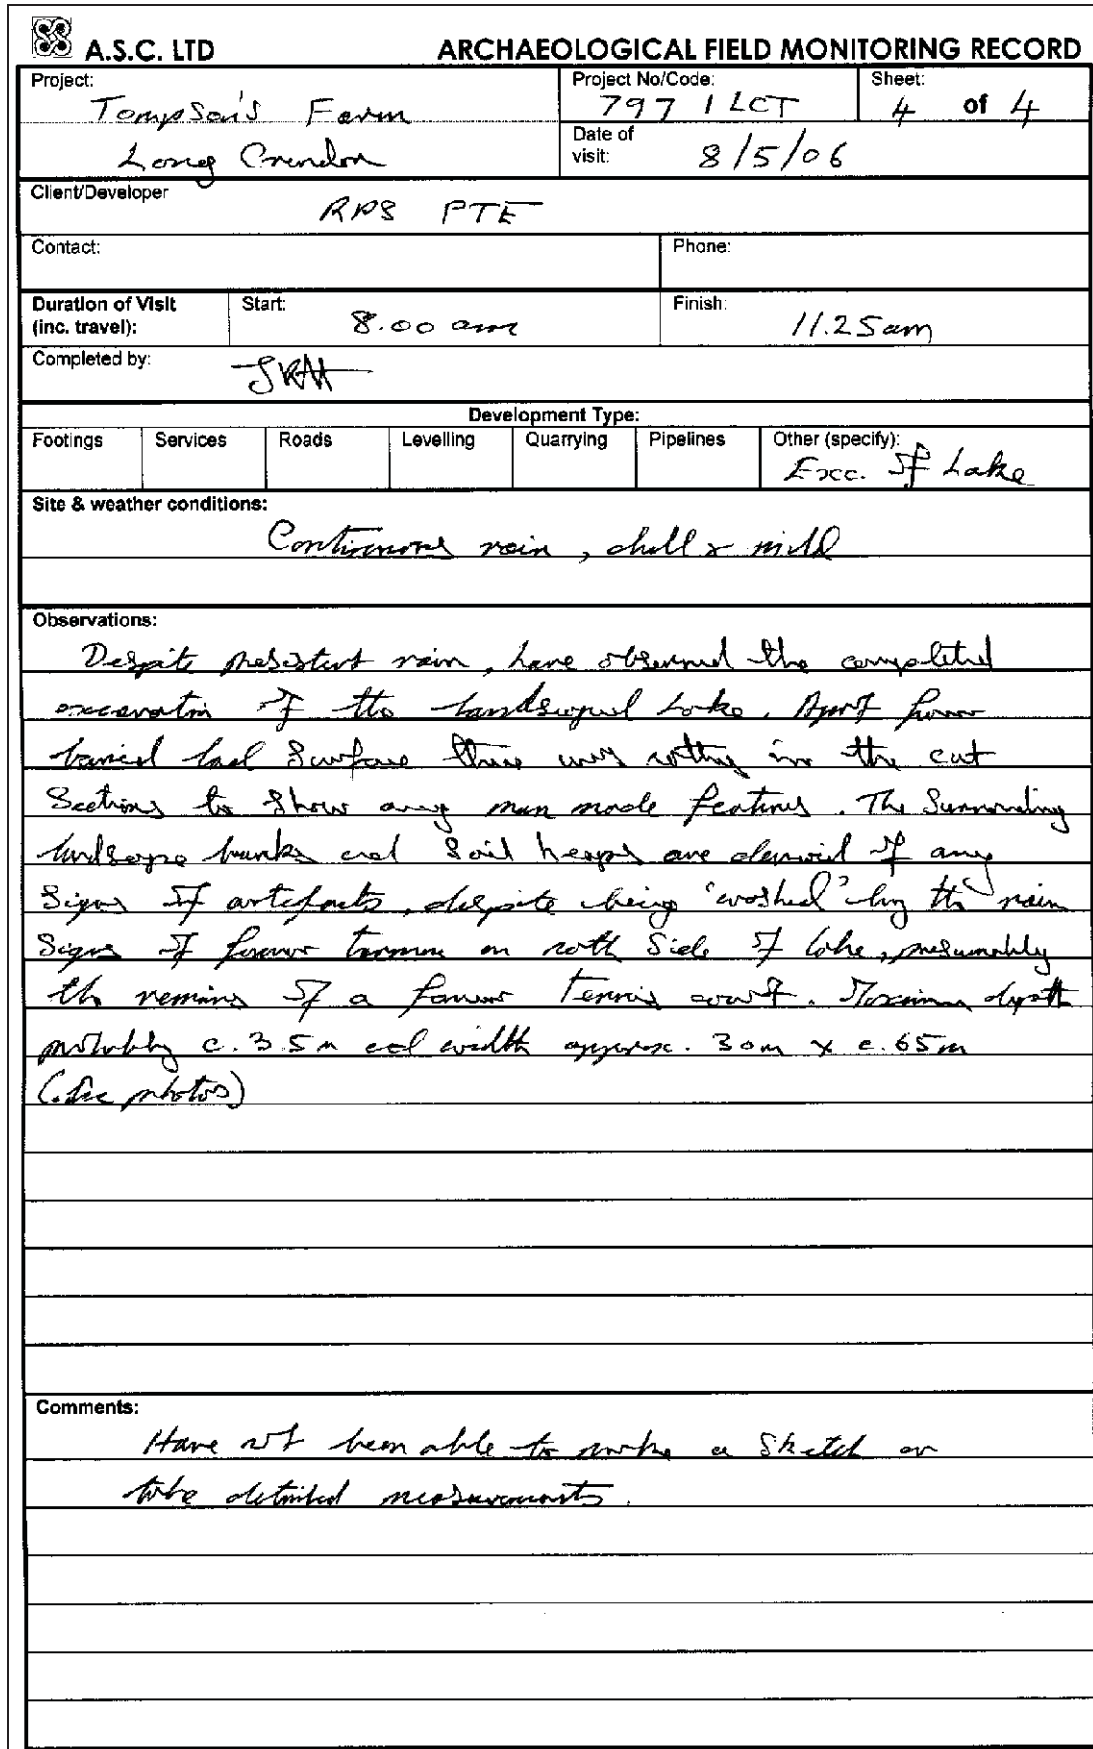 A.S.C. LTD
ARCHAEOLOGICAL FIELD MONITORING RECORD
Project:
Tompson's Farm
Long Crendon
Project No/Code:
797 / LCT
Sheet:
4 of 4
Date of visit:
8/5/06
Client/Developer
RPS PTE
Contact:
Phone:
Duration of Visit (inc. travel):
Start:
8.00 am
Finish:
11.25am
Completed by:
Development Type:
Footings Services Roads Levelling Quarrying Pipelines Other (specify):
Exc. of Lake
Site & weather conditions:
Continuous rain, dull & mild
Observations:
Despite persistent rain, have observed the completed
excavation of the landscaped Lake. Apart from
buried land Surface there was nothing in the cut
Sections to Show any man made features. The Surrounding
landscape banks and Soil heaps are devoid of any
Signs of artefacts, despite being 'washed' by the rain
Signs of former on north Side of lake, presumably
the remains of a former Tennis court. Maximum depth
probably c. 3.5m and width approx. 30m x c. 65m
(See photos)
Comments:
Have not been able to make a Sketch or
take detailed measurements.